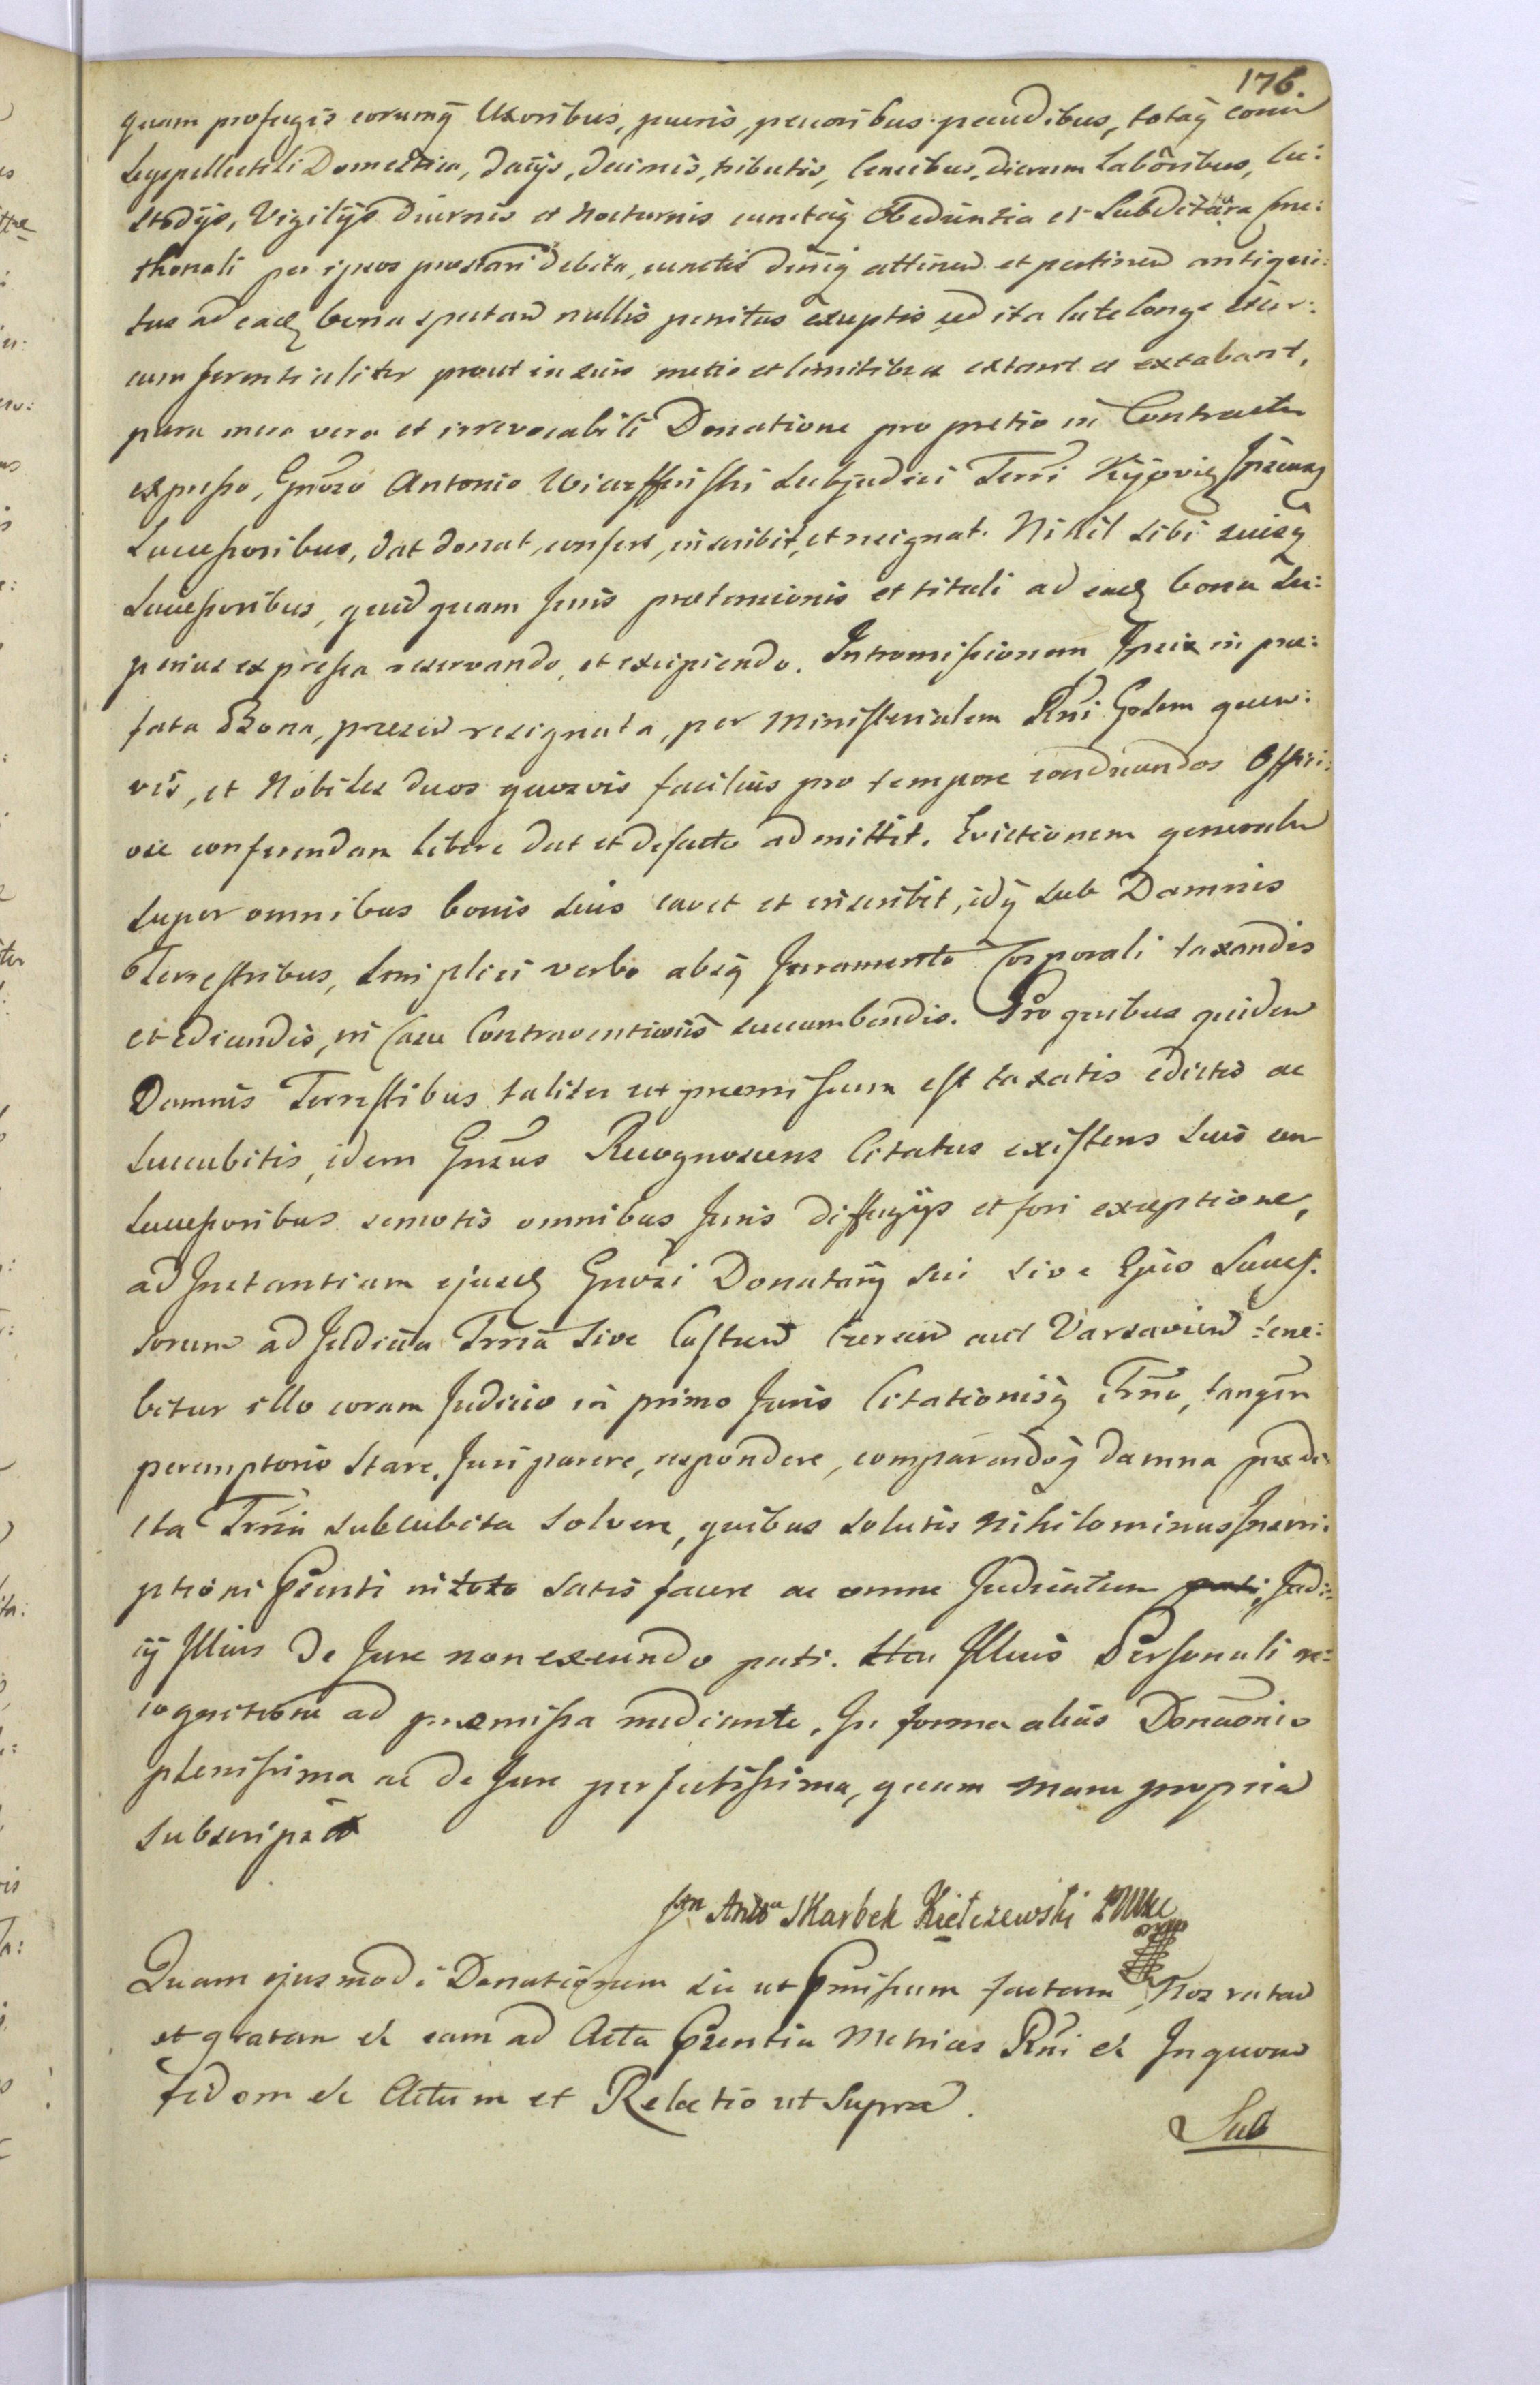 176.
quam profugis eorumq Uxoribus, pueris, pecoribus pecudibus, totaq eorum
Suppellectili Domestica, dacijs, decimis, tributis, Censibus, dierum Laboribus, Cu:
stodijs, Vigilijs diurnis et Nocturnis cunctaq Obedientia et Subditara Cme:
thonali per ipsos praestari debita, cunctis deniq attinen et pertinen antiqui:
tus ad eadq bona spectan nullis penitus exceptis sed ita late longe et cir:
cumferentialiter prout in suis metis et limitibus extant et extabant,
pura mera vera et irrevocabili Donatione pro pretio in Contractu
expresso, Gnoso Antonio Subjudici Terri Kijovien Ipsiusq
Successoribus, dat donat, confert, inscribit, et resignat. Nihil sibi suisq
Successoribus, quidquam Juris praetensionis et tituli ad eadq bona Su:
perius expressa reservando, et excipiendo. Intromissionem Ipsis in prae:
fata Bona, praesen resignata, per Ministerialem Rni Gnlem quem:
vis, et Nobiles duos quosvis facilius pro tempore conducendos Offici:
ose conferendam libere dat et defacto admittit. Evictionem generalem
super omnibus bonis Suis cavet et inscribit, idq sub Damnis
Terrestribus, Simplici verbo absq Juramento Corporali taxandis
et edicendis, in Casu Contraventionis succumbendis. Pro quibus quidem
Damnis Terrestribus taliter ut praemissum est taxatis edictis ac
Succubitis, idem Gnsus Recognoscens Citatus existens Suis cum
Successoribus remotis omnibus Juris diffugijs et fori exceptione,
ad Instantiam ejusdq Gnosi Donatarij Sui Sive Ejus Succes:
sorum ad Judicia Trria Sive Castren Cersen aut Varsavien tene:
bitur illo coram Judicio in primo Juris Citationisq Trno, tanqm
peremptorio Stare, Juri parere, respondere, comparendoq damna praedi
cta Trria subcubita Solvere, quibus solutis nihilominus Inscri:
ptioni Psenti in toto satisfacere ac omne Judicatum Judi:
cij Illius de Jure non exeundo pati. Sua Illius Personali re:
cognitione ad praemissa mediante, In forma alias Donaonis
plenissima ac de Jure perfectissima, quam manu propria
subscripsit
Antoni Skarbek Kiełczewski
Quam ejusmodi Donationem sic ut Pmissum factam, Nos ratam
et gratam & eam ad Acta Psentia Metrices Rni & In quorum
fidem & Actum et Relatio ut Supra.
Sub